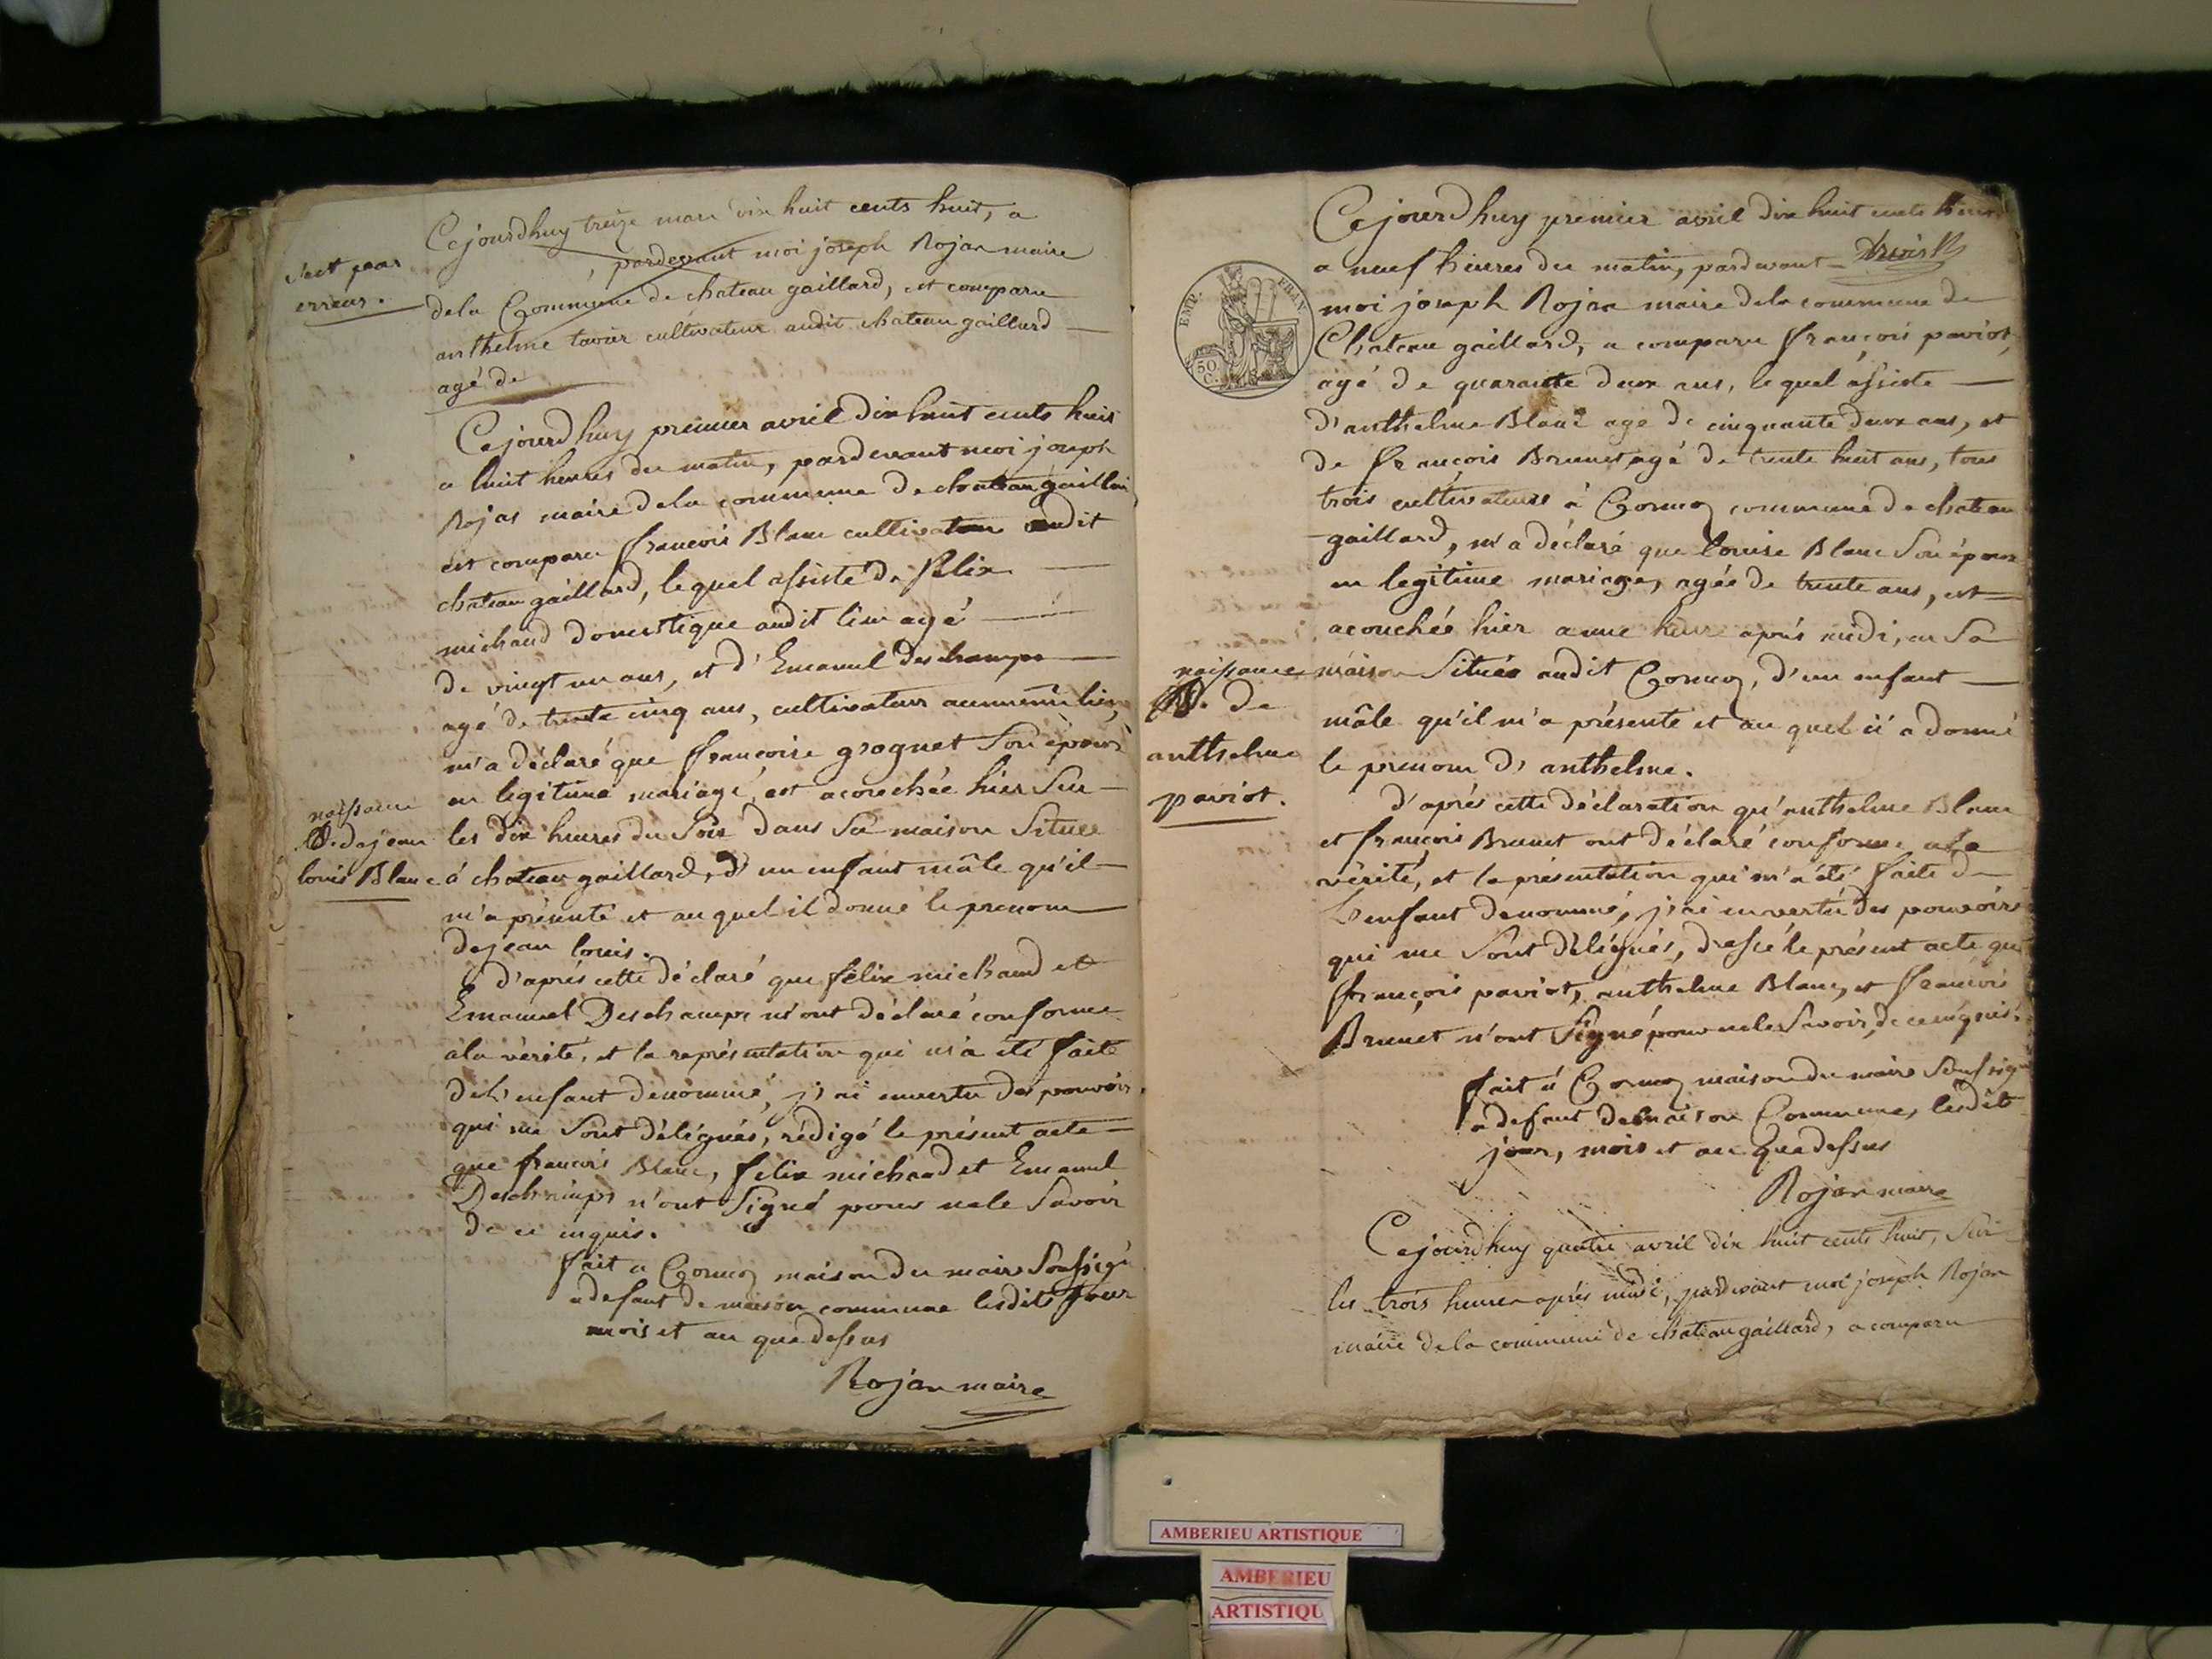 Cejourdhuy treize mars dix huit cents huit, a
pardevant moi joseph Rojan maire
C'est par
erreur.
dela Commune de chateau gaillard, est comparu
anthelme tavier cultivateur audit chateau gaillard
agé de
Cejourdhuy premier avril dix huit cents huit
a huit heures du matin, pardevant moi joseph
Rojas maire dela commune de chateau gaillar
est comparu francois Blanc cultivateur audit
chateau gaillard, lequel assisté de felix
michaud domestique audit lieu agé
de vingt un ans, et d'Emanuel deschamps
agé de trente cinq ans, cultivateur aumeme lieu,
m'a déclaré que francoise grognet Son épouse
en legitime mariage, est acouchée hier Sur
naissance
N. de jean
louis Blanc
les dix heures du Soir dans Sa maison Située
á chateau gaillard, d'un enfant mâle qu'il
m'a présenté et au quel il donné le prenom
de jean louis.
d'aprés cette déclaré que félix michaud et
Emanuel Deschamps m'ont déclaré conforme
ala vérité, et la représentation qui m'a été faite
de L'enfant denommé, j'ai envertu des pouvoirs
qui me Sont délégués, rédigé le présent acte
que francois Blanc, felix michaud et Emanuel
Deschamps n'ont Signé pour nele Savoir
de ce enquis.
fait a Cormoz maison du maire Soussigé
a defaut de maison commune lesdits Jour
mois et an que dessus
Rojan maire
Cejourdhuy premier avril dix huit cents huit
a neuf heures du matin, pardevant
trois
EMP. FRAN.
50
C.
moi joseph Rojan maire dela commune de
Chateau gaillard, a comparu françois paviot,
agé de quarante deux ans, lequel assisté
d'anthelme Blanc agé de cinquante deux ans, et
de françois Brunet agé de trente huit ans, tous
trois cultivateurs à Cormoz commune de chateau
gaillard, m'a déclaré que louise Blanc Son épouse
en legitime mariage, agée de trente ans, est
acouchée hier a une heure aprés midi, en Sa
naissance
N. de
anthelme
paviot.
maison Située audit Cormoz, d'un enfant
mâle qu'il m'a présenté et au quel il a donné
le prenom d'anthelme.
d'aprés cette déclaration qu'anthelme Blanc
et françois Brunet ont déclaré conforme ala
vérité, et la présentation qui m'a été faite de
L'enfant dénommé, j'ai envertu des pouvoirs
qui me Sont délégués, dressé le présent acte que
françois paviot, anthelme Blanc, et francois
Brunet n'ont Signé pour nele Savoir, de ce enquis.
fait á Cormoz maison du maire Soussig
a defaut demaison Commune, lesdits
jour, mois et an que dessus
Rojan maire
Cejourdhuy quatre avril dix huit cents huit, Sur
les trois heures aprés midi, pardevant moi joseph Rojan
maire de la commune de chateau gaillard, a comparu
AMBERIEU ARTISTIQUE
AMBERIEU
ARTISTIQU